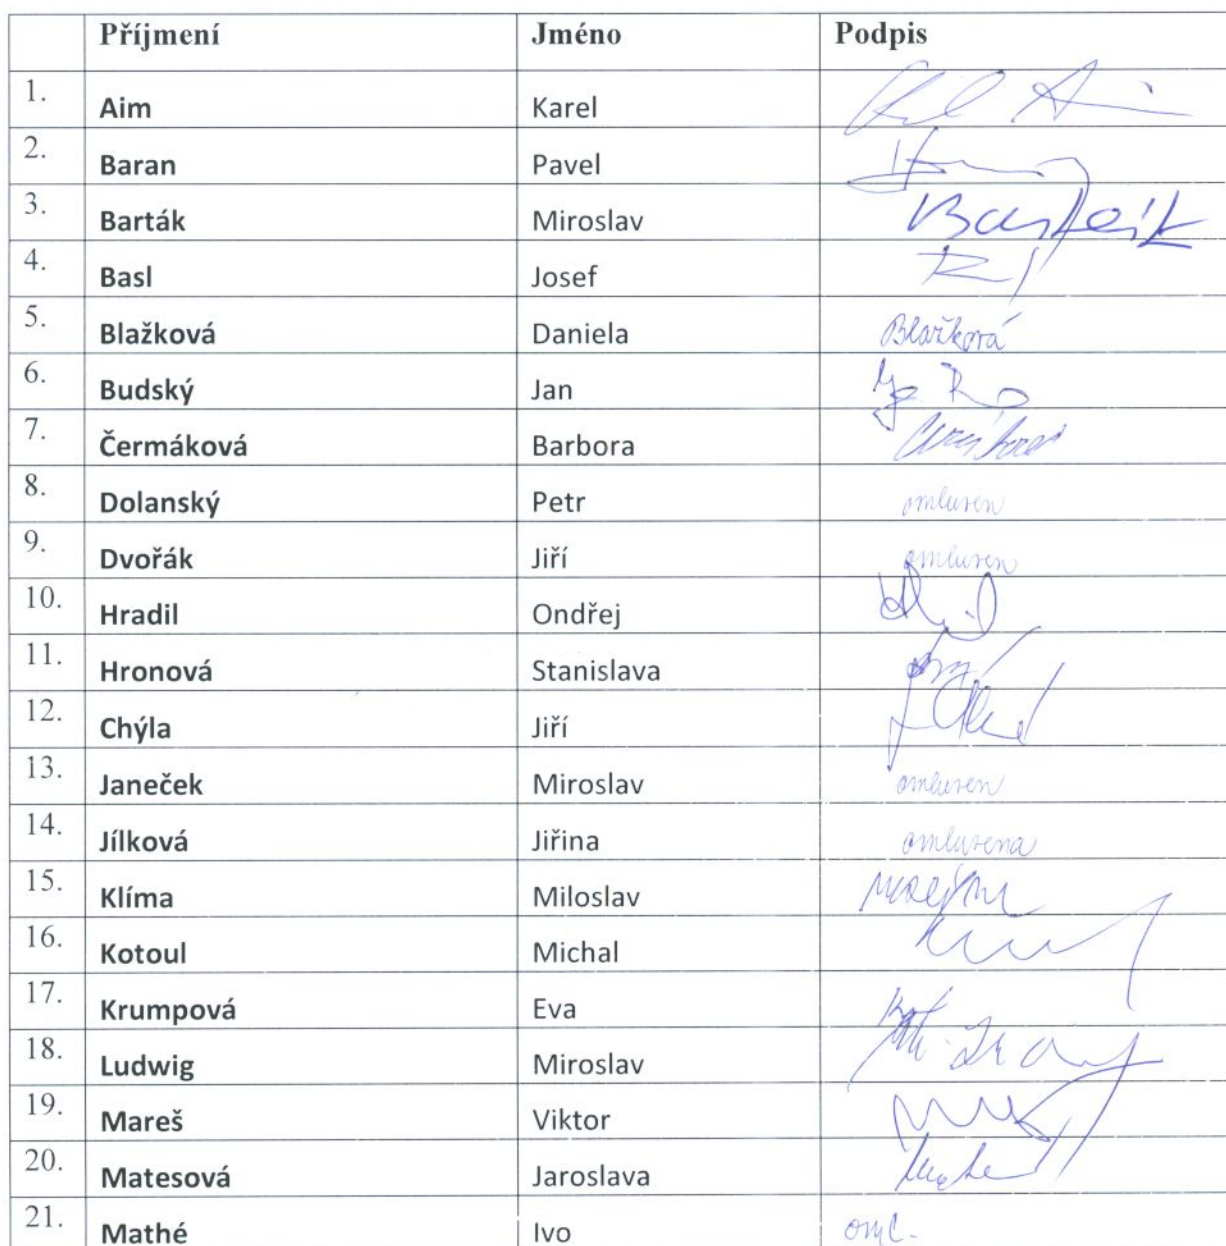 Příjmení Jméno Podpis
1. Aim Karel
2. Baran Pavel
3. Barták Miroslav Barták
4. Basl Josef
5. Blažková Daniela Blažková
6. Budský Jan
7. Čermáková Barbora
8. Dolanský Petr omluven
9. Dvořák Jiří omluven
10. Hradil Ondřej
11. Hronová Stanislava
12. Chýla Jiří
13. Janeček Miroslav omluven
14. Jílková Jiřina omluvena
15. Klíma Miloslav
16. Kotoul Michal
17. Krumpová Eva
18. Ludwig Miroslav
19. Mareš Viktor
20. Matesová Jaroslava
21. Mathé Ivo oml.